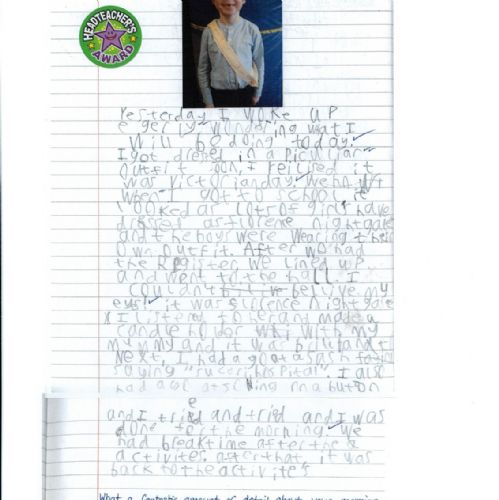 HEADTEACHER'S
AWARD
Yesterday I woke up
egerly wondering wat I
will be doing today.
I got dresed in a piculiar
outfit
was victorian day. When
When I got to school it
looked as lots of girls have
dressed as florence nightgale
and the boys were wearing their
own outfit. After we had
the register we lined up
and went to the hall. I
couldn't belive my
eyes! it was florence nightgale
I listened to her and made a
candle holder with my
mummy and it was
Next, I had a go at a sash
saying "hospital". I also
had a go at a button
and I tried and tried and I was
done for the morning. We
had breaktime after the
activites. after that, it was
back to the activites
What a fantastic amount of detail about your morning